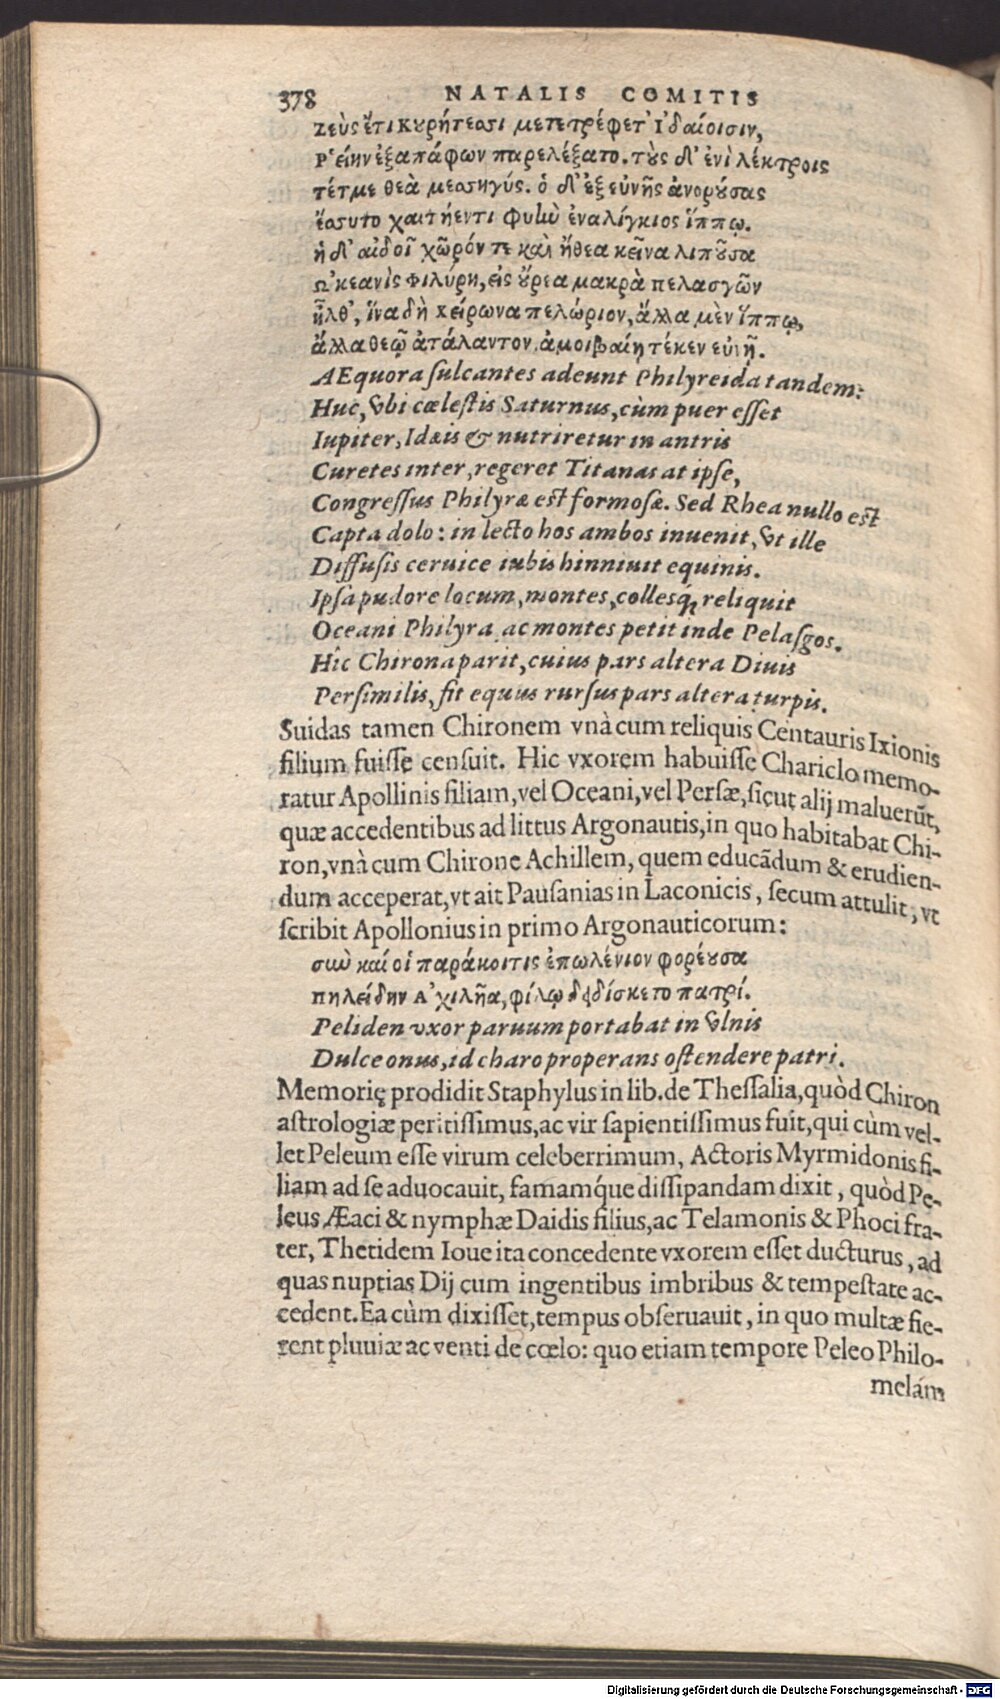 378 NATALIS COMITIS
Ζεὺς ἔτι Κυρήτεσσι μετετρέφετ' Ἰδαίοισιν,
Ρ'είην ἐξαπάφων παρελέξατο. τοὺς δ' ἐνὶ λέκτροις
τέτμε θεὰ μεσσηγύς. ὁ δ' ἐξ εὐνῆς ἀνορούσας
ἔσσυτο χαιτήεντι φυὴν ἐναλίγκιος ἵππῳ.
ἡ δ' αἰδοῖ χῶρόν τε καὶ ἤθεα κεῖνα λιποῦσα
Ωκεανὶς Φιλύρη, εἰς οὔρεα μακρὰ πελασγῶν
ἦλθ', ἵνα δὴ Χείρωνα πελώριον, ἄλλα μὲν ἵππῳ,
ἄλλα θεῷ ἀτάλαντον ἀμοιβαίῃ τέκεν εὐνῇ.
AEquora ſulcantes adeunt Philyreida tandem:
Huc, vbi cæleſtis Saturnus, cùm puer eſſet
Iupiter, Idæis & nutriretur in antris
Curetes inter, regeret Titanas at ipſe,
Congreſſus Philyræ eſt formoſæ. Sed Rhea nullo eſt
Capta dolo: in lecto hos ambos inuenit, vt ille
Diffuſis ceruice iubis hinniuit equinis.
Ipſa pudore locum, montes, collesq́; reliquit
Oceani Philyra ac montes petit inde Pelaſgos.
Hîc Chirona parit, cuius pars altera Diuis
Perſimilis, fit equius rurſus pars altera turpis.
Suidas tamen Chironem vnà cum reliquis Centauris Ixionis
filium fuiſſe cenſuit. Hic vxorem habuiſſe Chariclo memo-
ratur Apollinis filiam, vel Oceani, vel Perſæ, ſicut alij maluerūt,
quæ accedentibus ad littus Argonautis, in quo habitabat Chi-
ron, vnà cum Chirone Achillem, quem educādum & erudien-
dum acceperat, vt ait Pauſanias in Laconicis, ſecum attulit, vt
ſcribit Apollonius in primo Argonauticorum:
σὺν καί οἱ παράκοιτις ἐπωλένιον φορέουσα
πηλείδην Α'χιλῆα, φίλῳ δειδίσκετο πατρί.
Peliden vxor paruum portabat in vlnis
Dulce onus, id charo properans oſtendere patri.
Memorię prodidit Staphylus in lib. de Theſſalia, quòd Chiron
aſtrologiæ peritiſſimus, ac vir ſapientiſſimus fuit, qui cùm vel-
let Peleum eſſe virum celeberrimum, Actoris Myrmidonis fi-
liam ad ſe aduocauit, famamq́ue diſſipandam dixit, quòd Pe-
leus Æaci & nymphæ Daidis filius, ac Telamonis & Phoci fra-
ter, Thetidem Ioue ita concedente vxorem eſſet ducturus, ad
quas nuptias Dij cum ingentibus imbribus & tempeſtate ac-
cedent. Ea cùm dixiſſet, tempus obſeruauit, in quo multæ fie-
rent pluuiæ ac venti de cœlo: quo etiam tempore Peleo Philo-
melám
Digitalisierung gefördert durch die Deutsche Forschungsgemeinschaft - DFG